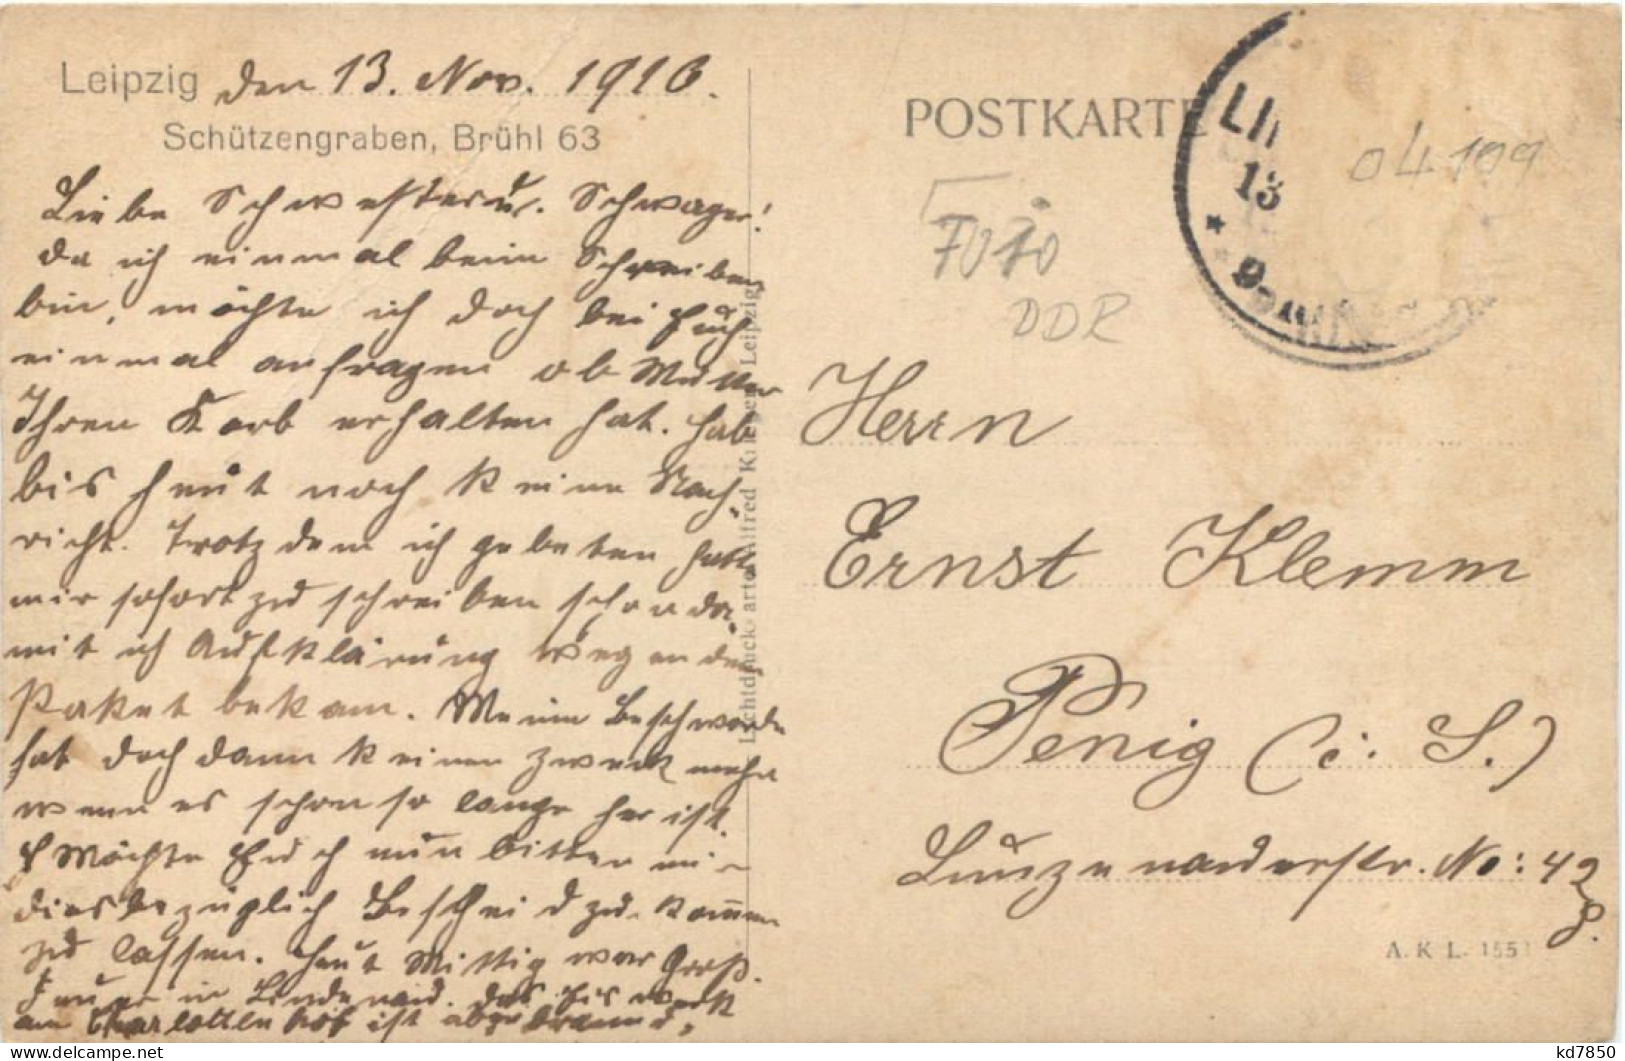 Leipzig den 13. Nov. 1916.
Schützengraben, Brühl 63
Liebe Schwester u. Schwager!
Da ich einmal beim Schreiben
bin, möchte ich doch bei Euch
einmal anfragen ob Mutter
Ihren Korb erhalten hat. Hab
bis heut noch keine Nach-
richt. Trotzdem ich gebeten hatte
mir sofort zu schreiben schon da-
mit ich Aufklärung wegen dem
Paket bekam. Meine Beschwerde
hat doch dann keinen Zweck mehr
wenn es schon so lange her ist.
Möchte Euch nun bitten mir
diesbezüglich Bescheid zu kommen
zu lassen. Heut Mittig war Groß-
Feuer in Lindenau. Das Eiswerk
am Charlottenhof ist abgebrannt.
POSTKARTE
LI
13
9-
04109
7010
DDR
Herrn
Ernst Klemm
Penig (i. S.)
Lunzenauerstr. No: 42
A. K. L. 155
Lichtdruck Alfred K Leipzig
kd7850